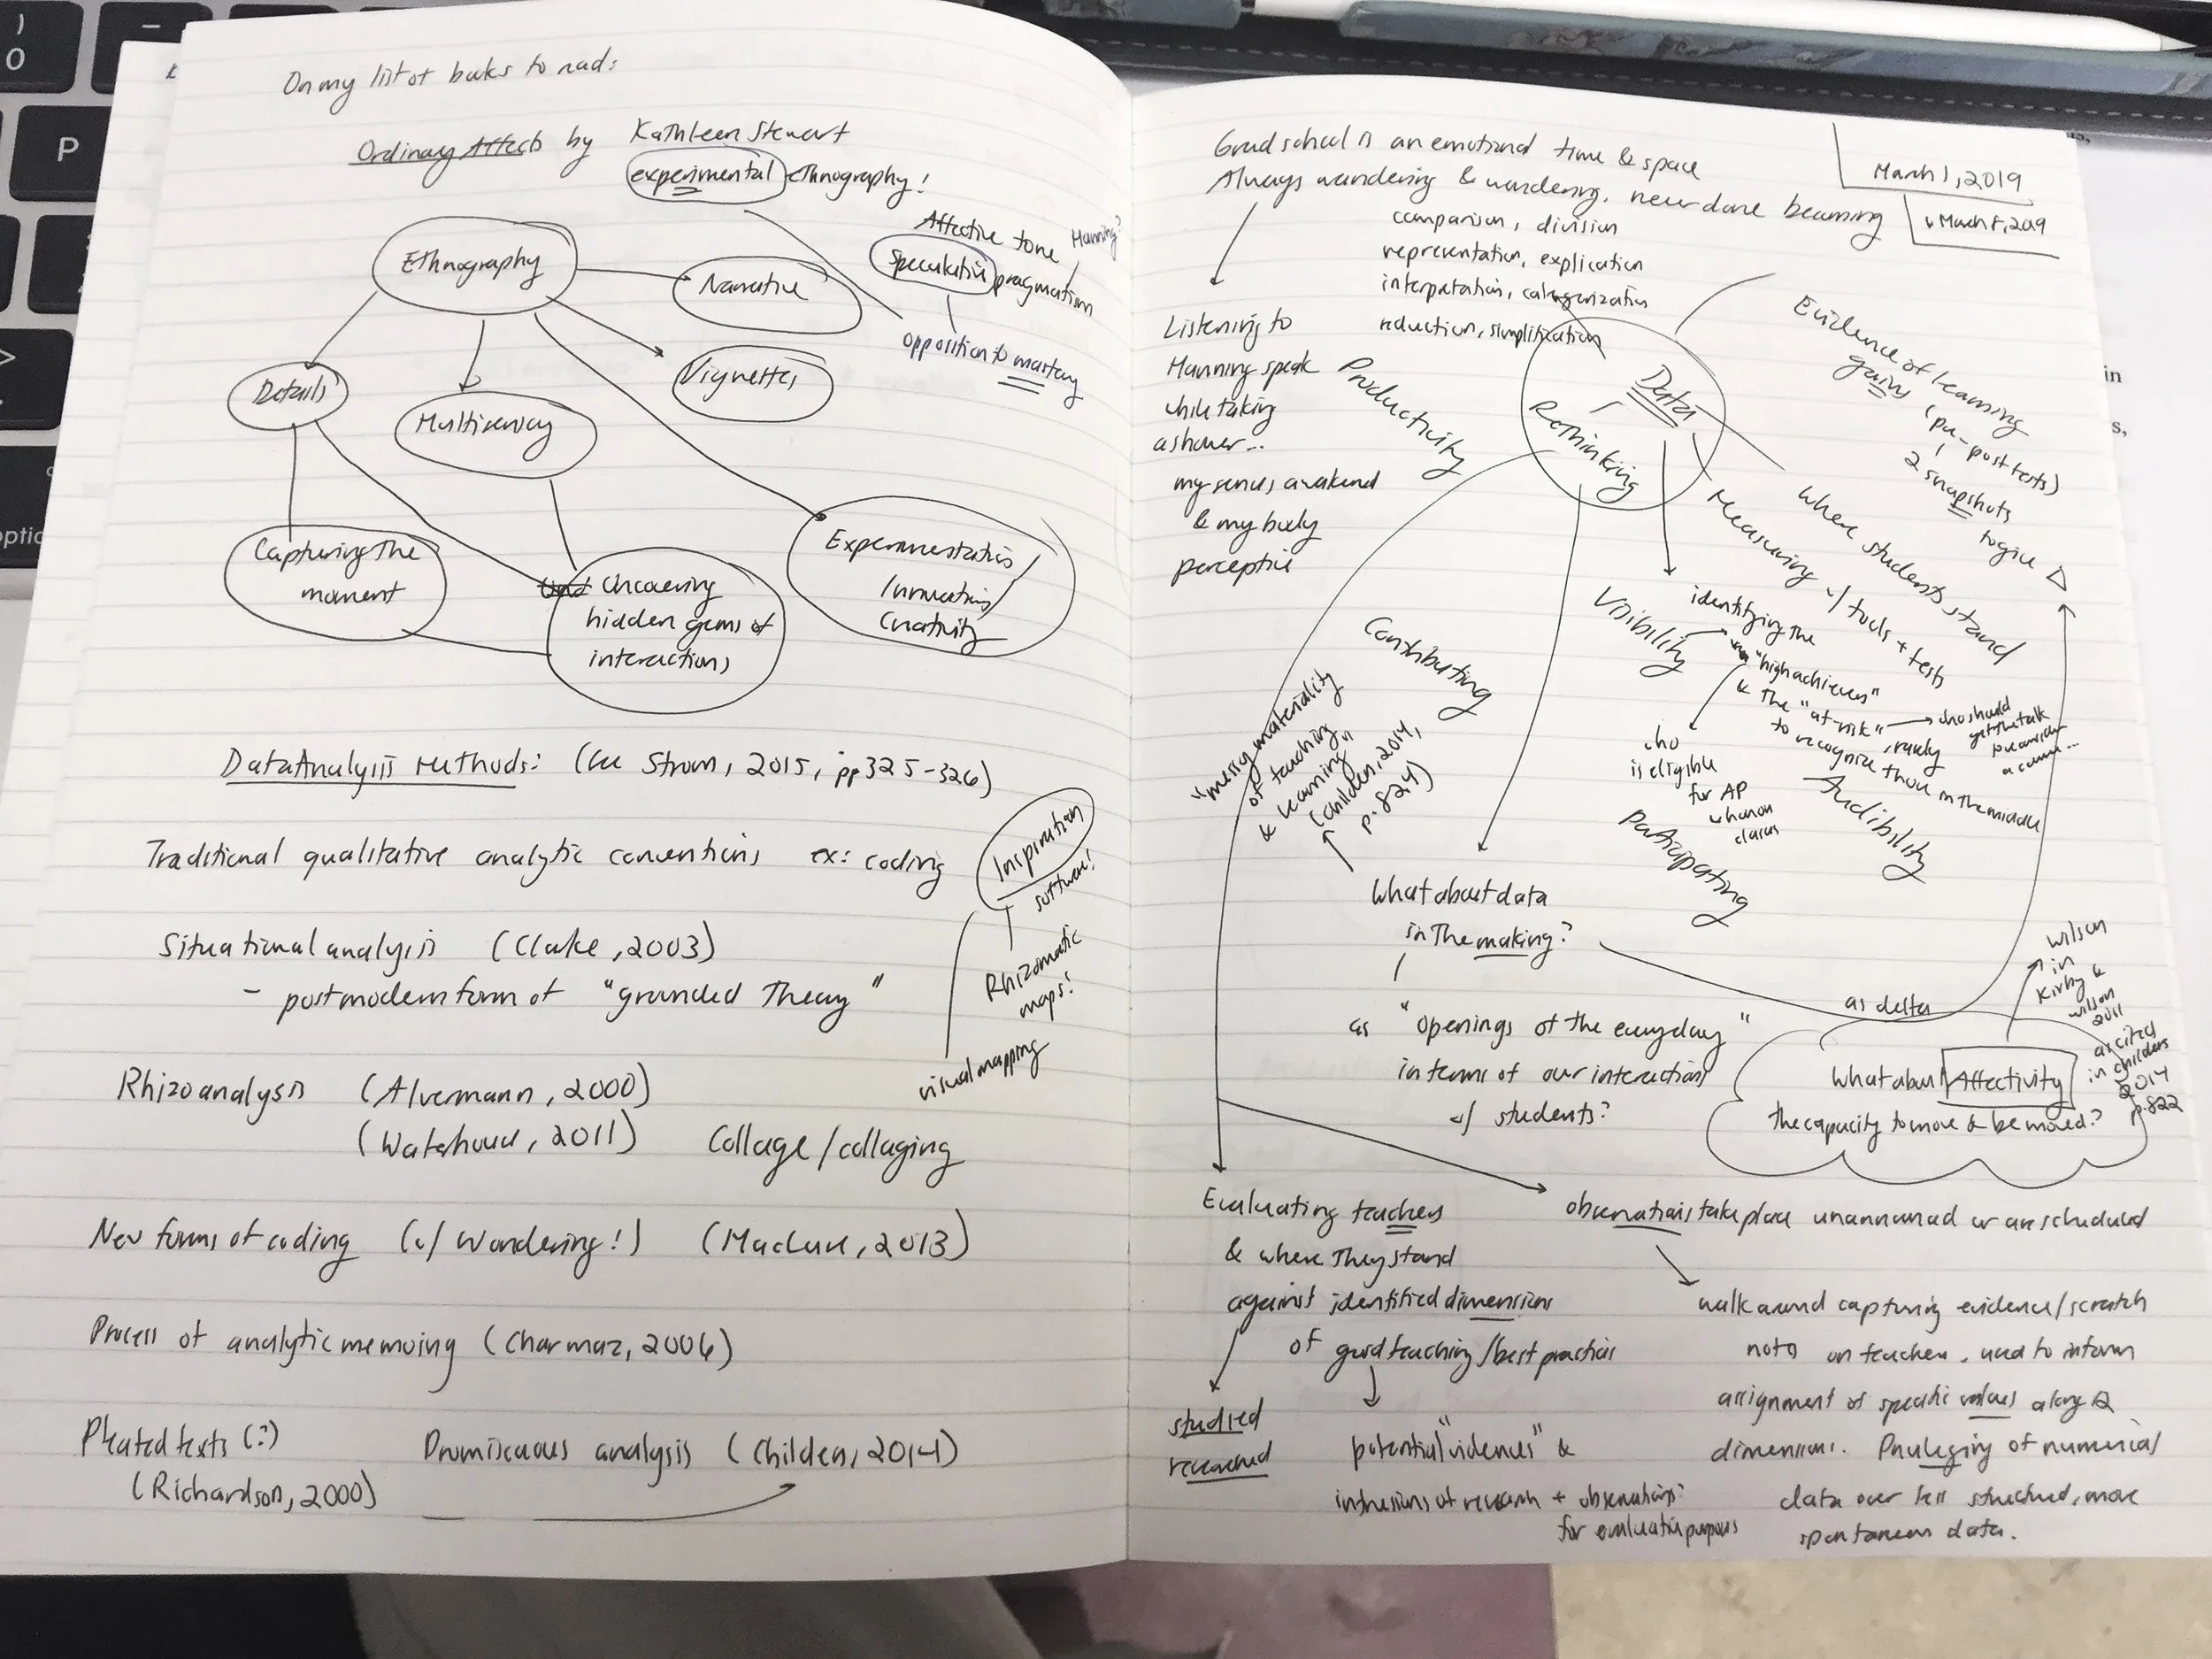 On my list of books to read:
Ordinary Affects by Kathleen Stewart
experimental ethnography!
Affective tone Manning?
Speculative pragmatism
opposition to mastery
Ethnography
Narrative
Details
Multisensory
Vignettes
Capturing the
moment
Uncovering
hidden gems of
interactions
Experimentation/
Innovation/
Creativity
Data Analysis Methods: (see Strom, 2015, pp 325-326)
Traditional qualitative analytic conventions ex: coding
Inspiration
software!
Rhizomatic
maps!
visual mapping
Situational analysis (Clarke, 2003)
- postmodern form of "grounded Theory"
Rhizoanalysis (Alvermann, 2000)
(Waterhouse, 2011) Collage/collaging
New forms of coding (w/ Wondering!) (MacLure, 2013)
Process of analytic memoing (Charmaz, 2006)
Pleated texts (?)
(Richardson, 2000)
Promiscuous analysis (Childers, 2014)
March 1, 2019
March 5, 2019
Grad school is an emotional time & space
Always wandering & wondering, never done becoming
comparison, division
representation, explication
interpretation, categorization
reduction, simplification
Listening to
Manning speak
while taking
a shower...
my senses awakened
& my body
perceptive
Productivity
Data
Rethinking
Evidence of learning
gains (pre-post tests)
2 snapshots
to give Δ
where students stand
Measuring w/ tools + tests
Visibility
identifying the
"high achievers"
& the "at-risk", rarely
to recognize those in the middle
who should
get the talk
who
is eligible
for AP
honors
classes
Audibility
Participating
Contributing
"messy materiality
of teaching
& learning"
(Childers, 2014,
p. 824)
What about data
in the making?
as "openings of the everyday"
in terms of our interactions
w/ students?
as delta
What about Affectivity
the capacity to move & be moved?
Wilson
in
Kirby &
Wilson
2011
as cited
in Childers
2014
p. 822
Evaluating teachers
& where they stand
against identified dimensions
of good teaching/best practices
studied
researched
potential "violences" &
intrusions of research + observations
for evaluative purposes
observations take place unannounced or are scheduled
walk around capturing evidence/scratch
notes on teachers, used to inform
assignment of specific values along
dimensions. Privileging of numerical
data over less structured, more
spontaneous data.